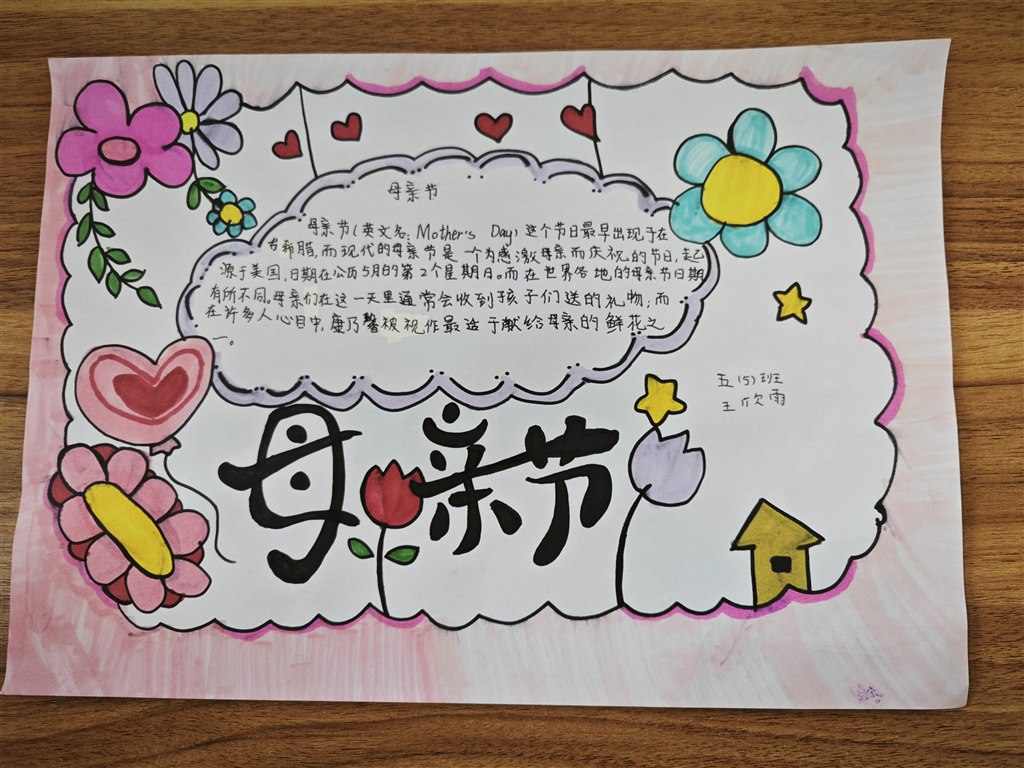 母亲节
母亲节(英文名,Mother's Day)这个节日最早出现于在
古希腊,而现代的母亲节是一个为感激母亲而庆祝的节日,起
源于美国,日期在公历5月的第2个星期日。而在世界各地的母亲节日期
有所不同。母亲们在这一天里通常会收到孩子们送的礼物;而
在许多人心目中,康乃馨被视作最适于献给母亲的鲜花之
一。
五(5)班
王欣雨
母亲节